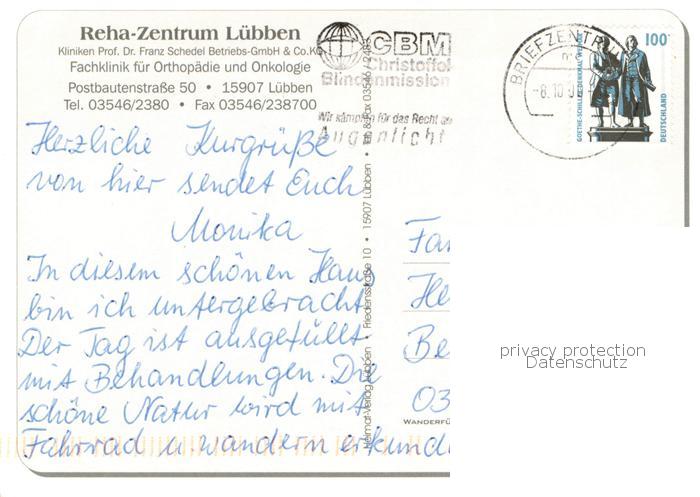 Reha-Zentrum Lübben
Kliniken Prof. Dr. Franz Schedel Betriebs-GmbH & Co.KG
Fachklinik für Orthopädie und Onkologie
Postbautenstraße 50 • 15907 Lübben
Tel. 03546/2380 • Fax 03546/238700
CBM
Christoffel
Blindenmission
Wir kämpfen für das Recht auf
Augenlicht
BRIEFZENTRUM
-8.10
100
GOETHE-SCHILLER-DENKMAL WEIMAR
DEUTSCHLAND
Herzliche Kurgrüße
von hier sendet Euch
Monika
In diesem schönen Haus
bin ich untergebracht.
Der Tag ist ausgefüllt
mit Behandlungen. Die
schöne Natur wird mit
Fahrrad u. wandern erkund
Heimat-Verlag Lübben • Friedensstraße 10 • 15907 Lübben • Tel. & Fax 03546
Fa
He
Be
03
WANDERFÜ
privacy protection
Datenschutz